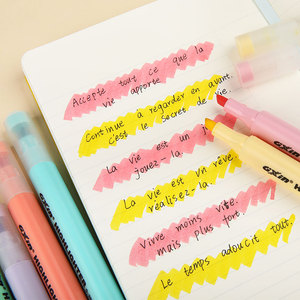 Accepte tout ce que la
vie apporte
Continue à regarder en avant.
c'est le secret de vie.
La vie est un j
jouez-la.
La vie est un rêve,
réalisez-la.
Vivre moins vite.
mais plus fort.
Le temps adoucit tout.